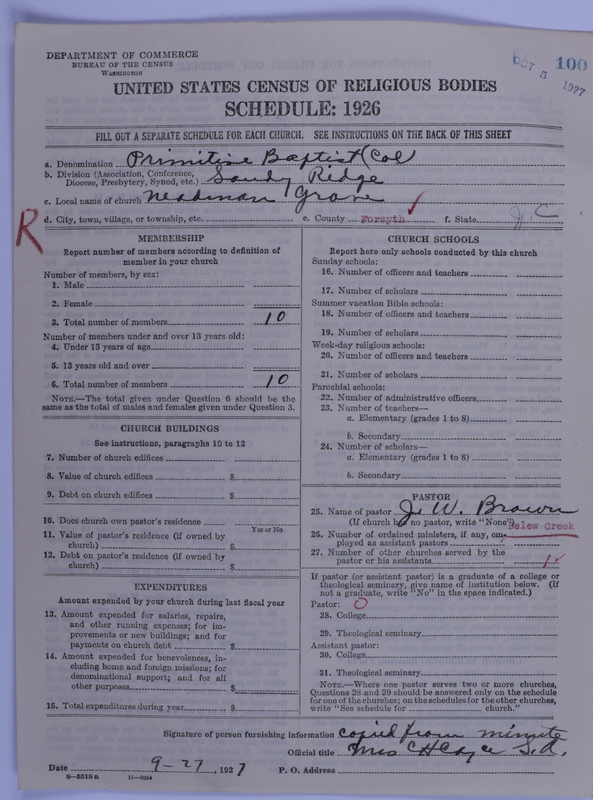 DEPARTMENT OF COMMERCE
BUREAU OF THE CENSUS
WASHINGTON
OCT 5 1927
100
UNITED STATES CENSUS OF RELIGIOUS BODIES
SCHEDULE: 1926
FILL OUT A SEPARATE SCHEDULE FOR EACH CHURCH. SEE INSTRUCTIONS ON THE BACK OF THIS SHEET
a. Denomination Primitive Baptist (Col
b. Division (Association, Conference,
Diocese, Presbytery, Synod, etc.) Sandy Ridge
c. Local name of church Neadman Grove
d. City, town, village, or township, etc. e. County Forsyth f. State C
R
MEMBERSHIP
Report number of members according to definition of
member in your church
Number of members, by sex:
1. Male
2. Female
3. Total number of members 10
Number of members under and over 13 years old:
4. Under 13 years of age
5. 13 years old and over
6. Total number of members 10
NOTE.—The total given under Question 6 should be the
same as the total of males and females given under Question 3.
CHURCH BUILDINGS
See instructions, paragraphs 10 to 12
7. Number of church edifices
8. Value of church edifices $
9. Debt on church edifices $
10. Does church own pastor's residence
Yes or No
11. Value of pastor's residence (if owned by
church) $
12. Debt on pastor's residence (if owned by
church) $
EXPENDITURES
Amount expended by your church during last fiscal year
13. Amount expended for salaries, repairs,
and other running expenses; for im-
provements or new buildings; and for
payments on church debt $
14. Amount expended for benevolences, in-
cluding home and foreign missions; for
denominational support; and for all
other purposes $
15. Total expenditures during year $
CHURCH SCHOOLS
Report here only schools conducted by this church
Sunday schools:
16. Number of officers and teachers
17. Number of scholars
Summer vacation Bible schools:
18. Number of officers and teachers
19. Number of scholars
Week-day religious schools:
20. Number of officers and teachers
21. Number of scholars
Parochial schools:
22. Number of administrative officers
23. Number of teachers—
a. Elementary (grades 1 to 8)
b. Secondary
24. Number of scholars—
a. Elementary (grades 1 to 8)
b. Secondary
PASTOR
25. Name of pastor J. W. Brown
(If church has no pastor, write "None") Belew Creek
26. Number of ordained ministers, if any, em-
ployed as assistant pastors
27. Number of other churches served by the
pastor or his assistants 1
If pastor (or assistant pastor) is a graduate of a college or
theological seminary, give name of institution below. (If
not a graduate, write "No" in the space indicated.)
Pastor: O
28. College
29. Theological seminary
Assistant pastor:
30. College
31. Theological seminary
NOTE.—Where one pastor serves two or more churches,
Questions 28 and 29 should be answered only on the schedule
for one of the churches; on the schedules for the other churches,
write "See schedule for church."
Signature of person furnishing information copied from minute
Official title Mrs C H Cayce S. A.
Date 9-27, 1927 P. O. Address
8-5518a 11-9064